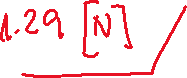 1.29 [N]